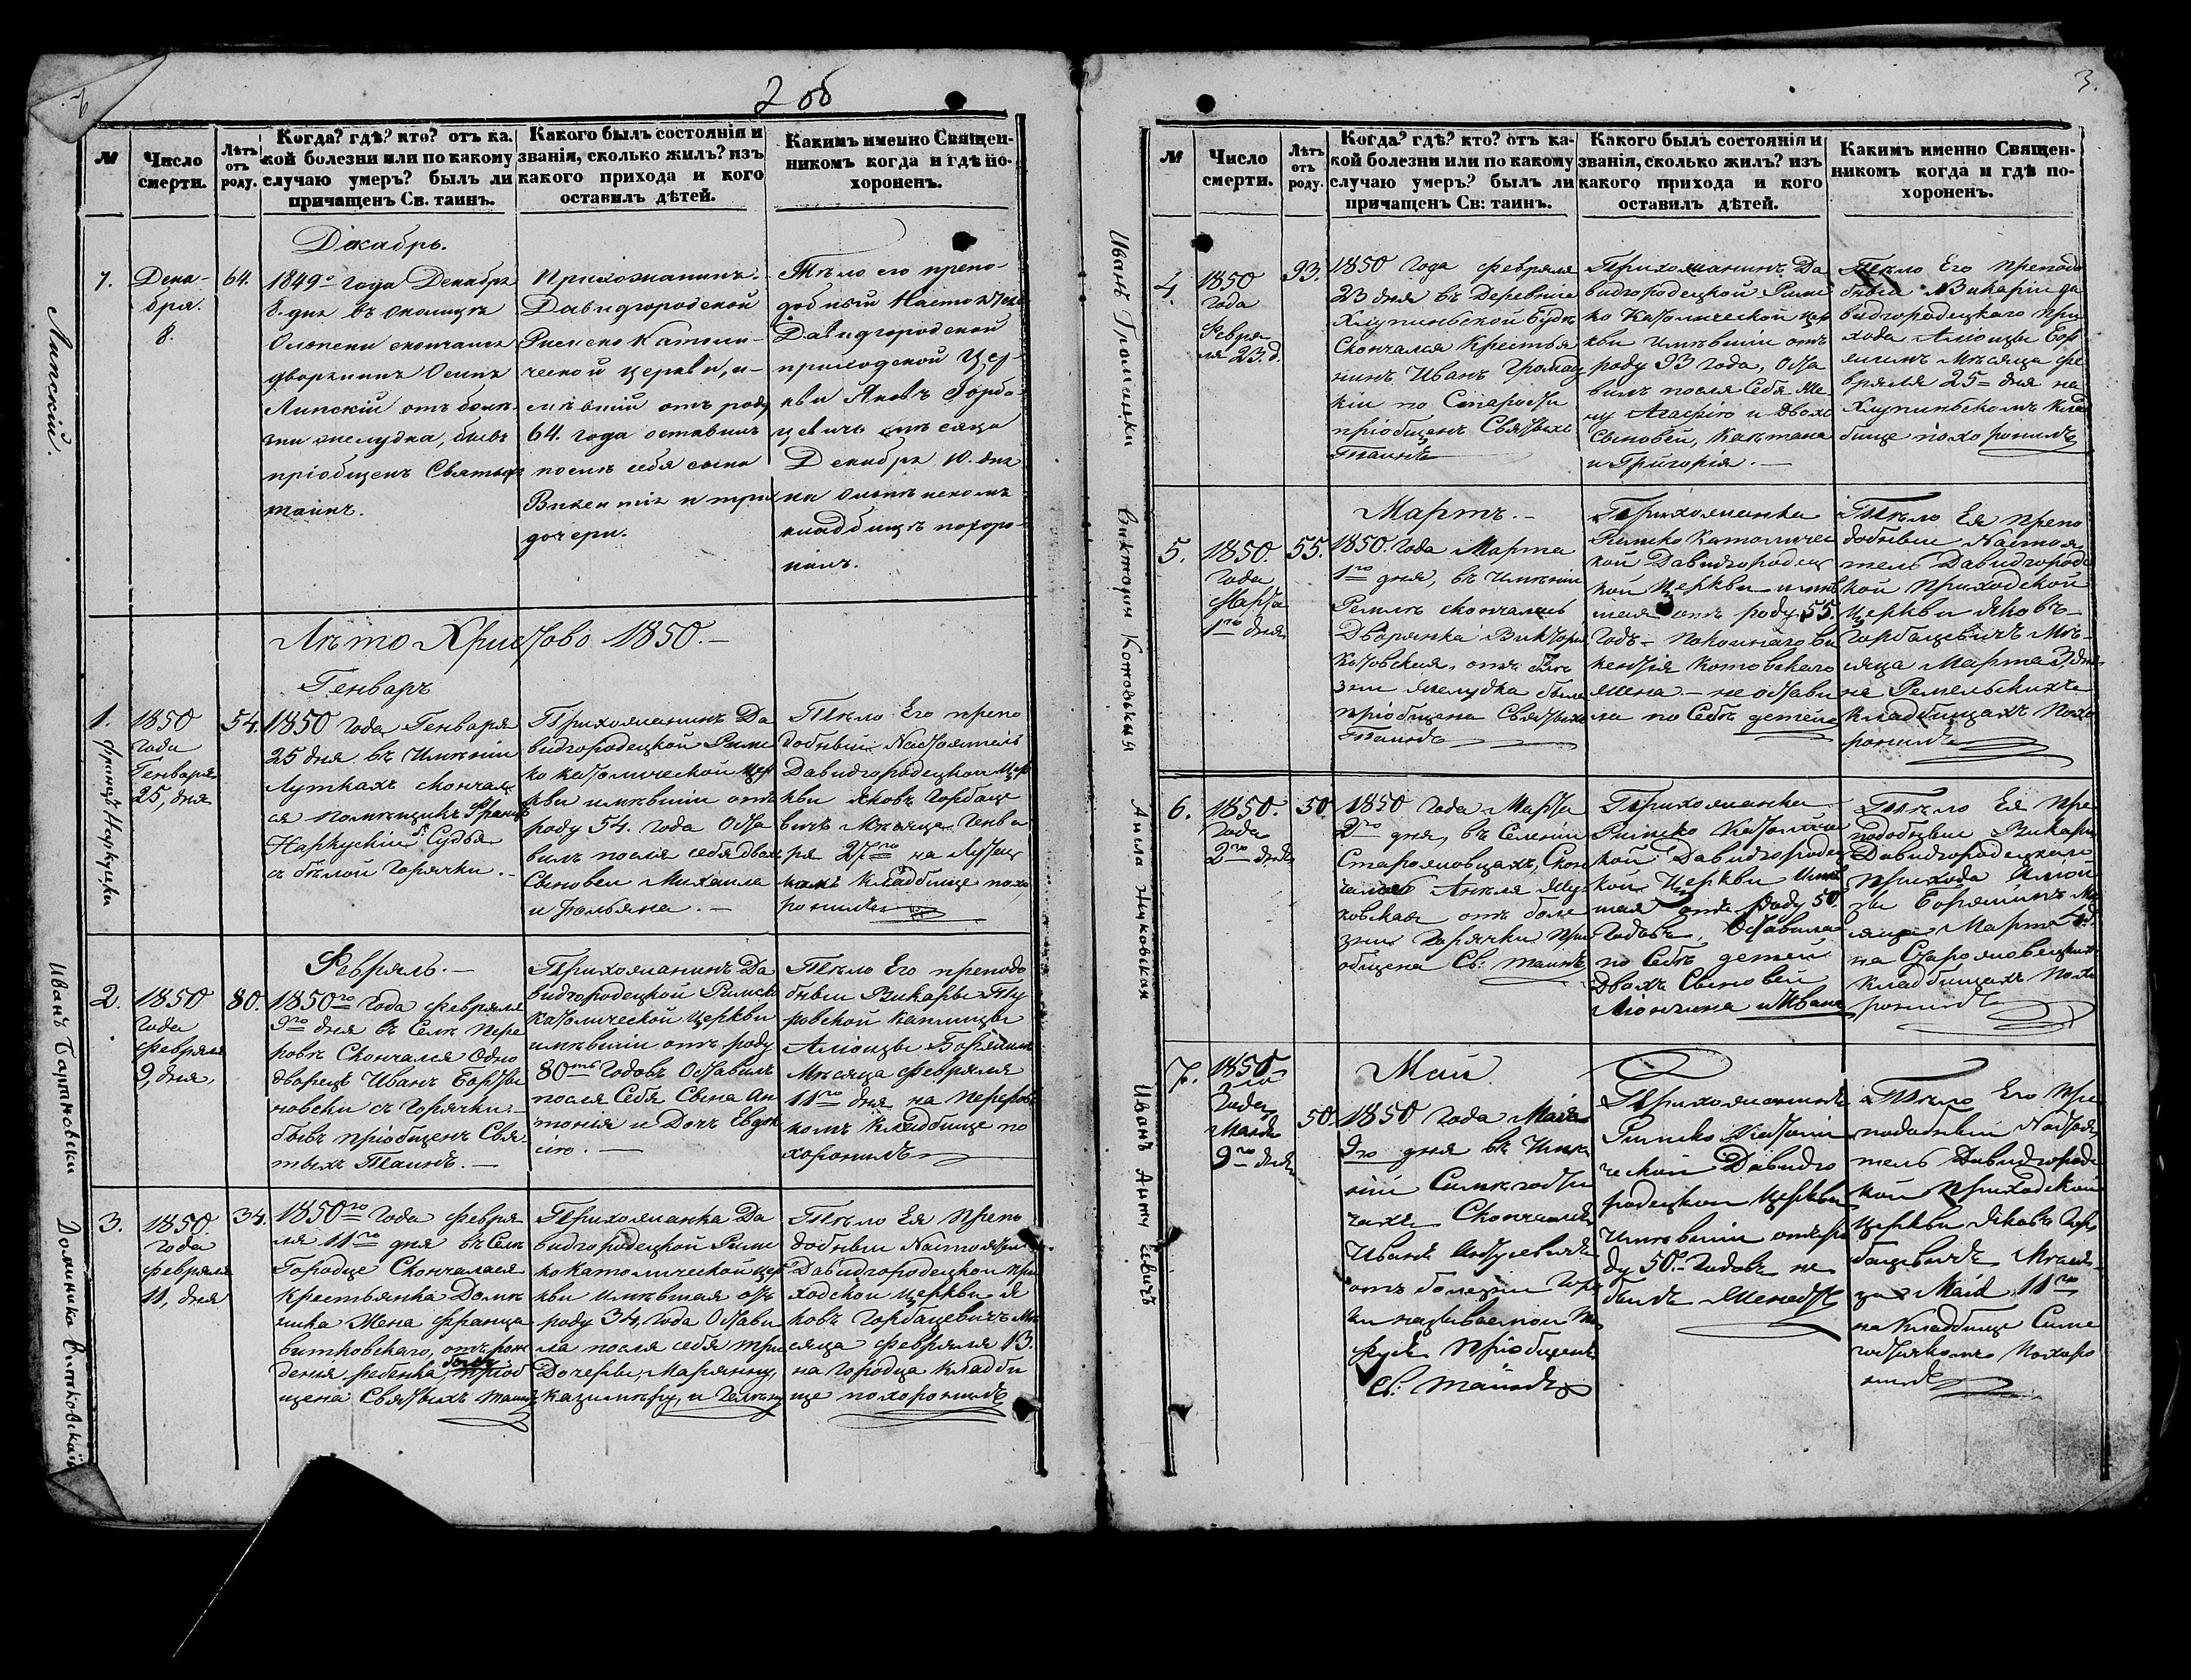 2 об
№
Число
смерти.
Лѣтъ
отъ
роду.
Когда? гдѣ? кто? отъ ка-
кой болезни или по какому
случаю умеръ? былъ ли
причащенъ Св. таинъ.
Какого былъ состоянія и
званія, сколько жилъ? изъ
какого прихода и кого
оставилъ дѣтей.
Какимъ именно Священ-
никомъ когда и гдѣ по-
хороненъ.
Липскій.
Декабрь.
7.
Дека-
бря.
8.
64.
1849го года Декабря
8. дня въ околицѣ
скончался
дворянинъ Осипъ
Липскій отъ болѣ-
зни желудка, бывъ
пріобщенъ Святыхъ
таинъ.
Прихожанинъ
Давидгородской
Римско Католи-
ческой церкви, и-
мѣвшій отъ роду
64. года оставилъ
после себя сына
Викентія и три
дочери.
Тѣло его препо-
добный Настоятель
Давидгородской
приходской Цер-
кви Яковъ Горба-
цевичъ мѣсяца
Декабря 10. дня
на
кладбищѣ похоро-
нилъ.
Лѣто Христово 1850.-
Генварь
1.
Францъ Наркуски
1850
года
Генваря
25, дня
54.
1850 года Генваря
25 дня въ Имѣніи
Луткахъ скончал-
ся помѣщикъ Францъ
Наркускій Судья
съ бѣлой Горячки.-
Прихожанинъ Да
видгородецкой Рим
ко католической цер
кви имѣвшій отъ
роду 54. года Оста
вилъ после себя двох
Сыновей Михаила
и Юльяна.-
Тѣло Его препо
добный Настоятель
Давидгородецкой Цер
кви Яковъ Горбаце
вичъ Мѣсяца Генва
ря 27го на
Кладбище похо
ронилъ
Февраль.-
2.
Иванъ Бартновски
1850
года
февраля
9, дня,
80.
1850го Года февраля
9го дня въ Селѣ Пере
ровѣ Скончался Одно
дворецъ Иванъ Борты
новски съ Горячки.-
бывъ пріобщенъ Свя
тыхъ Таинъ.-
Прихожанинъ Да
видгородецкой Римск
католической Церкви
имѣвшій отъ роду
80ть годовъ Оставилъ
после Себя Сына Ан
тонія и Дочъ Евдок
ію.-
Тѣло Его преподо
бный Викарый Ту
ровской каплицы
Алюизы Борейшим
Мѣсяца февраля
11го дня на Переров
комъ Кладбище по
хоронилъ
3.
Доминика Витковская
1850.
года
февраля
11, дня
34.
1850го Года Февра
ля 11го дня въ Селѣ
Городце Скончалася
Крестьянка Доми
ника Жена Франца
витковскаго, отъ рож
денія ребенка,
щена Святыхъ таинъ
Прихожанка Да
видгородецкой Рим
ко католической цер
кви имѣвшая отъ
роду 34, года Остави
ла после себя три
Дочеры, Марянну,
Казимѣру, и Гелену
Тѣло Ея Препо
добный Настоятел
Давидгородецкой при
ходской церкви Я
ковъ Горбацевичъ Мѣ
сяца февраля 13.
на городца Кладби
ще похоронилъ
3.
№
Число
смерти.
Лѣтъ
отъ
роду.
Когда? гдѣ? кто? отъ ка-
кой болезни или по какому
случаю умеръ? былъ ли
причащенъ Св: таинъ.
Какого былъ состоянія и
званія, сколько жилъ? изъ
какого прихода и кого
оставилъ дѣтей.
Какимъ именно Священ-
никомъ когда и гдѣ по-
хороненъ.
4.
1850
года
Февра
ля 23.д.
93.
1850 года февраля
23 дня въ Деревнѣ
Хлупинской Будке
Скончался Крестья
нинъ Иванъ Громац
кіи по Старости
пріобщенъ Святыхъ
Таинъ
Прихожанинъ Да
видгородецкой Рим
ко Католической цер
кви имѣвшій отъ
роду 93 года, Оста
вилъ после Себя Же
ну Агафію и двохъ
Сыновей,
и Григорія.-
Тѣло Его преподо
бный Викарій да
видгородецкаго при
хода Алюизы Бор
Мѣсяца фе
враля 25= дня на
Хлупинскомъ Клад
бище похоронилъ
Мартъ.-
5.
Викторія Котовьская
1850.
года
Марта
1го дня
55.
1850. года Марта
1го дня, въ имѣніи
Ремлѣ скончалась
Дворянка Виктория
Котовская, отъ болѣ
зни Желудка была
пріобщена Святыхъ
Таинъ
Прихожанка
Римско Католичес
кой Давидгородец
кой церкви имѣв
шая отъ роду 55.
Годъ- покойнаго Ви
кентія Котовскаго
жена- не остави
ла по Себѣ детей
Тѣло Ея препо
добный Настоя
тель Давидгородс
кой Приходской
Церкви Яковъ-
Горбацевичъ Мѣ-
сяца Марта 3 дня
на Ремельскихъ
Кладбищахъ Похо
ронилъ
6.
Анѣла Жуковская
1850.
года
2го дня
50
1850 года Марта
2го дня, въ Селеніи
Старожовцахъ, Скон
чалась Анеля Жу
ковская отъ боле
зни Горячки прі
общена Св: таинъ
Прихожанка
Римско Католичес
кой Давидгородец
кой Церкви имѣв
шая отъ роду 50
Годовъ, Оставила
по Себѣ детей
Двохъ Сыновей
и Ивана
Тѣло Ея Пре
подобный Викарій
Давидгородецкаго
прихода Алюи
зы Борейшимъ Мѣ
сяца Марта
на Старожовецкихъ
Кладбищахъ Похо
ронилъ
Май.
7.
1850
года
Мая
9го дня
50.
1850 Года Маія
9го дня въ Имѣ
ніи
Скончался
Иванъ Анцусевичъ
отъ болезни Горя
чки называемой
Пріобщенъ
Св: Таинъ
Прихожанинъ
Римско Католи
ческой Давидго
родецкой Церкви
Имѣвшій отъ ро
ду 50. Годовъ не
былъ Женатъ
Тѣло Его Пре
подобный Настоя
тель Давидгородс
кой Приходской
Церкви Яковъ Гор
бацевичъ Мѣся
ца Маія 11го
на Кладбище
Похоро
нилъ